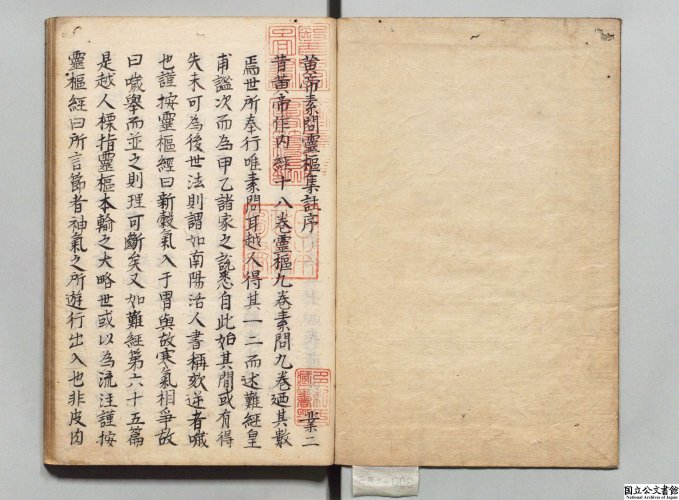 黄帝素問靈樞集註序 業二
昔黄帝作内經十八卷靈樞九卷素問九卷廼其數
焉世所奉行唯素問耳越人得其一二而述難經皇
甫謐次而為甲乙諸家之說悉自此始其間或有得
失未可為後世法則謂如南陽活人書稱欬逆者噦
也謹按靈樞經曰新穀氣入于胃與故寒氣相爭故
曰噦舉而並之則理可斷矣又如難經第六十五篇
是越人標指靈樞本輸之大略世或以為流注謹按
靈樞經曰所言節者神氣之所遊行出入也非皮肉
国立公文書館
National Archives of Japan